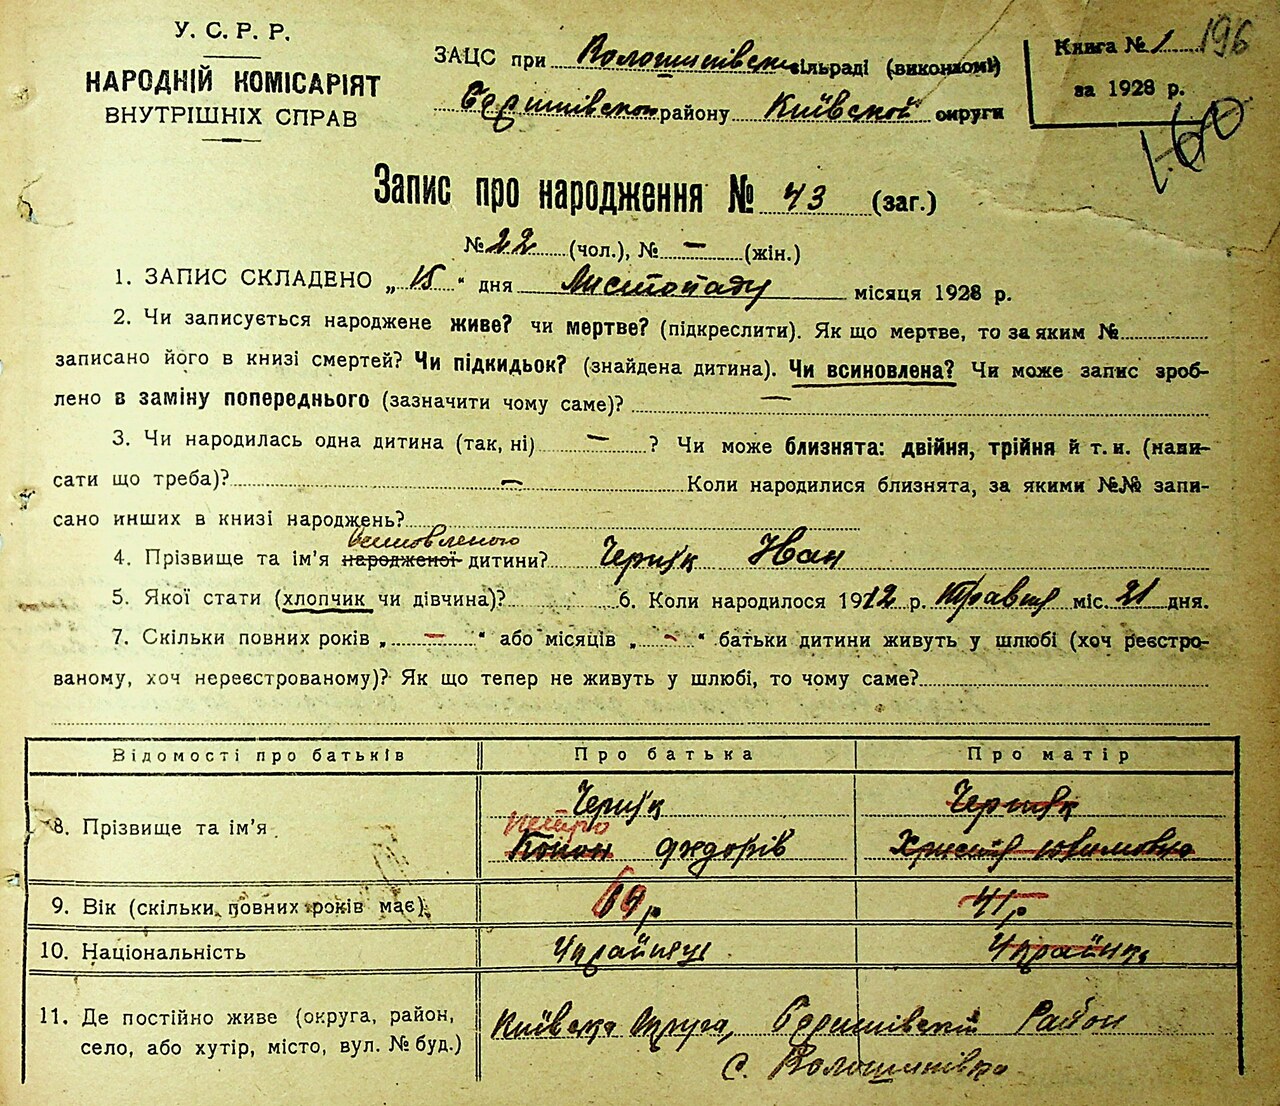 У. С. Р. Р.
НАРОДНІЙ КОМІСАРІЯТ
ВНУТРІШНІХ СПРАВ
ЗАЦС при Волошинівськ сільраді (виконкомі)
Баришівськом району Київської округи
Книга № 1 196
за 1928 р.
160
Запис про народження № 43 (заг.)
№ 22 (чол.), № — (жін.)
1. ЗАПИС СКЛАДЕНО „15“ дня Листопаду місяця 1928 р.
2. Чи записується народжене живе? чи мертве? (підкреслити). Як що мертве, то за яким №
записано його в книзі смертей? Чи підкидьок? (знайдена дитина). Чи всиновлена? Чи може запис зроб-
лено в заміну попереднього (зазначити чому саме)? —
3. Чи народилась одна дитина (так, ні) — ? Чи може близнята: двійня, трійня й т. и. (напи-
сати що треба)? — Коли народилися близнята, за якими №№ запи-
сано инших в книзі народжень?
всиновленою
4. Прізвище та ім'я народженої дитини? Черняк Иван
5. Якої стати (хлопчик чи дівчина)? 6. Коли народилося 1912 р. Травня міс. 21 дня.
7. Скільки повних років „—“ або місяців „—“ батьки дитини живуть у шлюбі (хоч реєстро-
ваному, хоч нереєстрованому)? Як що тепер не живуть у шлюбі, то чому саме?
Відомості про батьків Про батька Про матір
Черняк Черняк
Петро
8. Прізвище та ім'я Конон Федорів Христя Юхимовна
9. Вік (скільки повних років має) 69 р. 41 р.
10. Національність Українець Українка
11. Де постійно живе (округа, район, Київська Округа, Баришівський Район
село, або хутір, місто, вул. № буд.) с. Волошинівка